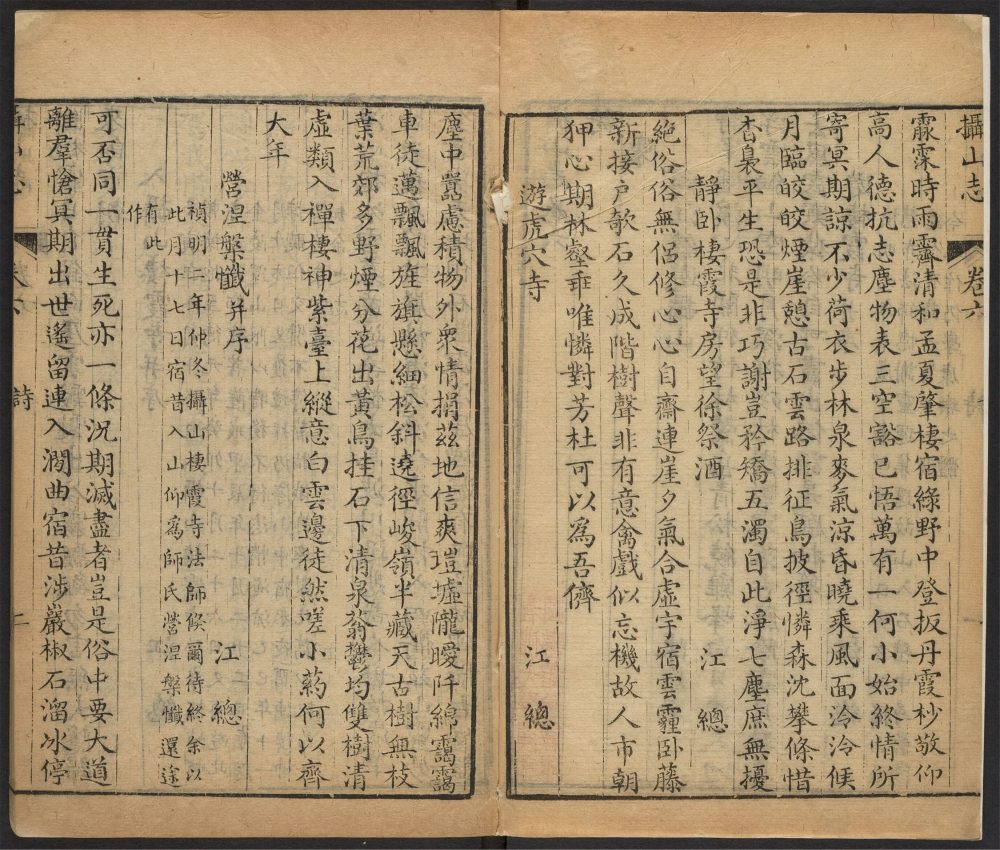 攝山志 卷六
霢霂時雨霽清和孟夏肇棲宿綠野中登扳丹霞杪敬仰
高人德抗志塵物表三空豁已悟萬有一何小始終情所
寄冥期諒不少荷衣步林泉麥氣涼昏曉乘風面泠泠候
月臨皎皎煙崖憩古石雲路排征鳥披徑憐森沈攀條惜
杳裊平生忽是非巧謝豈矜矯五濁自此淨七塵庶無擾
靜卧棲霞寺房望徐祭酒 江總
絶俗俗無侶修心心自齋連崖夕氣合虛宇宿雲霾卧藤
新接戸欹石久成階樹聲非有意禽戲似忘機故人市朝
狎心期林壑乖唯憐對芳杜可以為吾儕
遊虎穴寺 江總
塵中囂慮積物外衆情捐茲地信爽塏墟隴曖阡綿靄靄
車徒邁飄飄旌旗懸細松斜遶徑峻嶺半藏天古樹無枝
葉荒郊多野煙分花出黃鳥挂石下清泉蓊鬱均雙樹清
虛類入禪棲神紫臺上縱意白雲邊徒然嗟小葯何以齊
大年
營涅槃懺并序 江總
禎明二年仲冬攝山棲霞寺法師倏爾待終余以
此月十七日宿昔入山仰為師氏營涅槃懺還途
有此
作
可否同一貫生死亦一條況期滅盡者豈是俗中要大道
離羣愴冥期出世遙留連入澗曲宿昔涉巖椒石溜冰停
卷六 詩 二